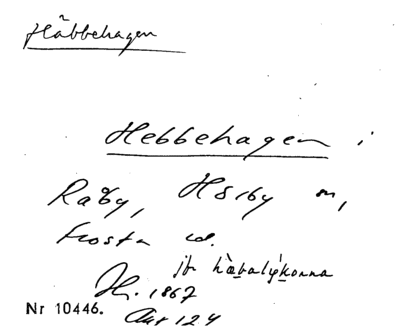 Häbbehagen
Hebbehagen i
Råby, Hörby sn,
Frosta hd.
jfr häbalykonna
H. 1867
Akt 124
Nr 10446.